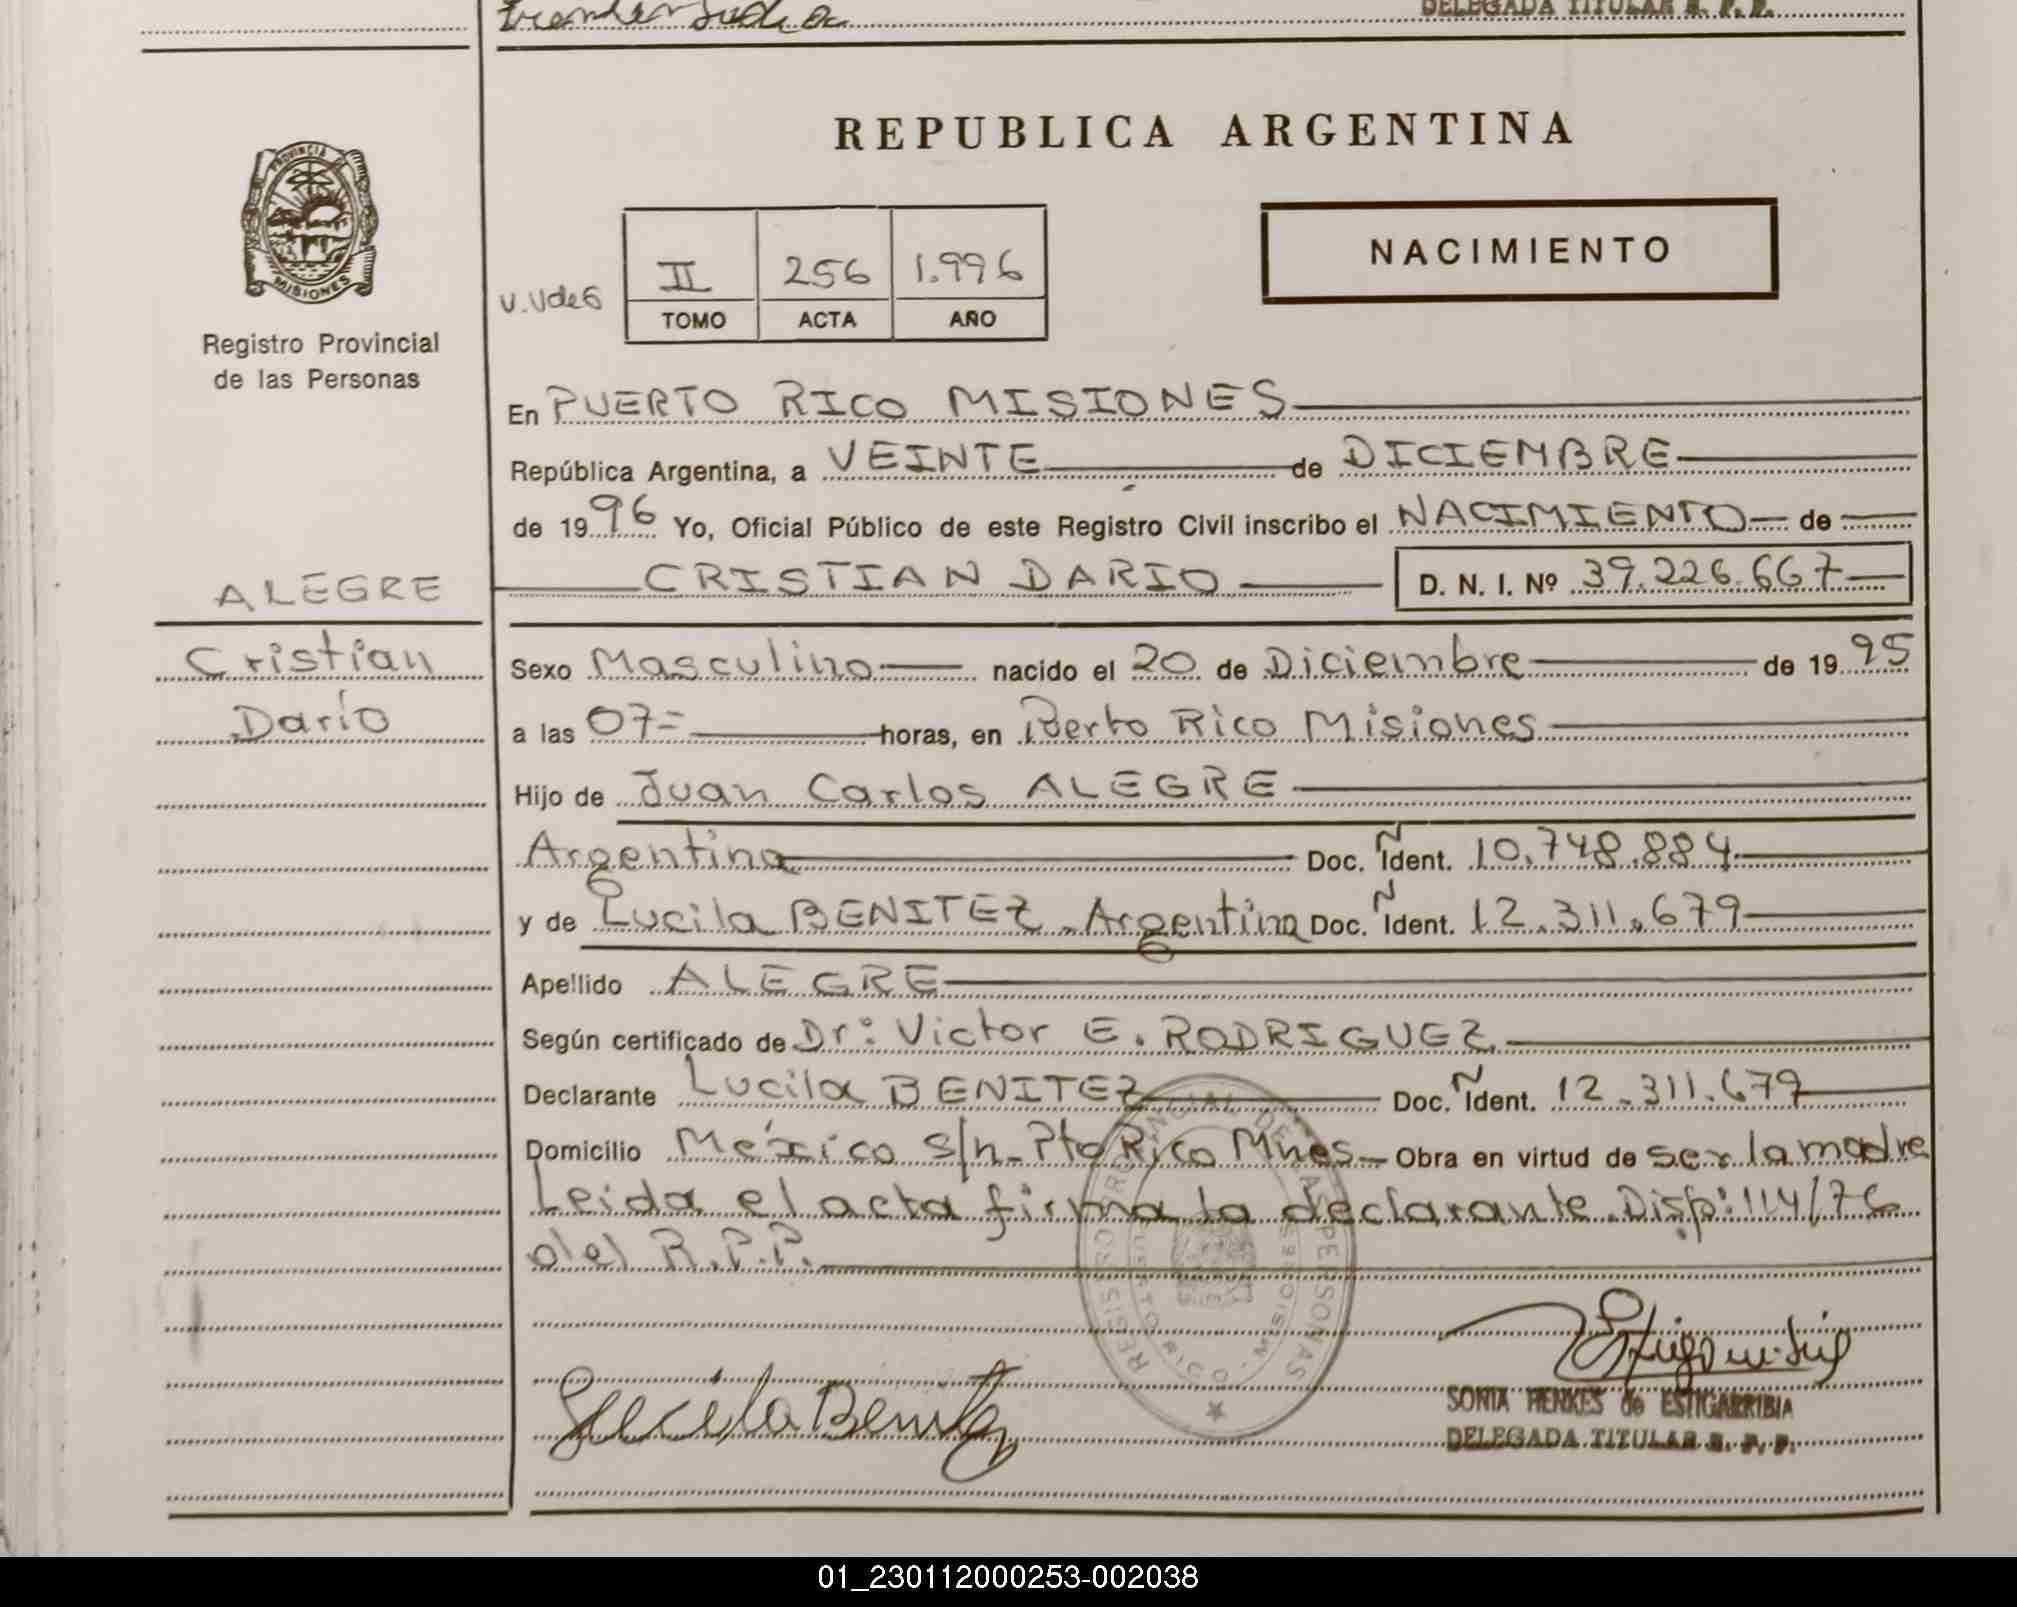 DELEGADA TITULAR R. P. P.
PROVINCIA DE
MISIONES
Registro Provincial
de las Personas
REPUBLICA ARGENTINA
NACIMIENTO
II 256 1.996
TOMO ACTA AÑO
En PUERTO RICO MISIONES
República Argentina, a VEINTE de DICIEMBRE
de 1996 Yo, Oficial Público de este Registro Civil inscribo el NACIMIENTO de
CRISTIAN DARIO D. N. I. Nº 39.226.667
ALEGRE
Cristian
Darío
Sexo Masculino nacido el 20 de Diciembre de 1995
a las 07= horas, en Puerto Rico Misiones
Hijo de Juan Carlos ALEGRE
Argentina Doc. Ñ Ident. 10.748.884
y de Lucila BENITEZ. Argentina Doc. Ñ Ident. 12.311.679
Apellido ALEGRE
Según certificado de Dr: Victor E. RODRIGUEZ.
Declarante Lucila BENITEZ Doc. Ñ Ident. 12.311.679
Domicilio México s/n- Pto Rico Mnes- Obra en virtud de ser la madre
Leida el acta firma la declarante. Disp: 114/76
del R.P.P.
REGISTRO PROVINCIAL DE LAS PERSONAS
PUERTO RICO - MISIONES
Lucila Benitez
SONIA HENKES de ESTIGARRIBIA
DELEGADA TITULAR R. P. P.
01_230112000253-002038